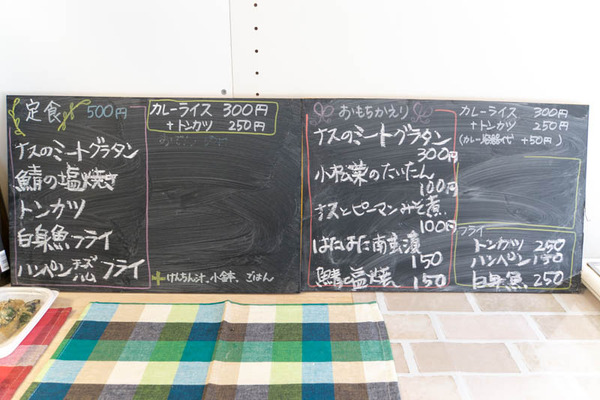 定食 500円
ナスのミートグラタン
鯖の塩焼き
トンカツ
白身魚フライ
ハンペンチーズハムフライ
カレーライス 300円
+トンカツ 250円
+けんちん汁、小鉢、ごはん
おもちかえり
ナスのミートグラタン
300円
小松菜のたいたん
100円
ナスとピーマンみそ煮.
100円
はねあじ南蛮漬
150
鯖塩焼 150
カレーライス 300円
+トンカツ 250円
(カレー容器代 +50円)
フライ
トンカツ 250
ハンペン 150
白身魚 250